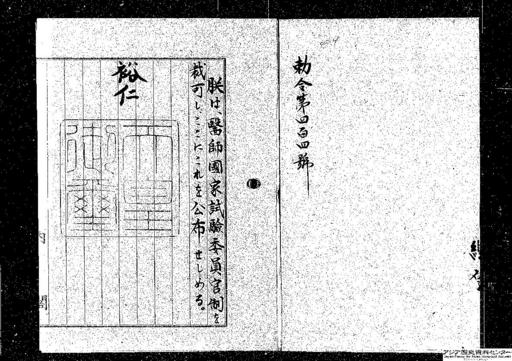 勅令第四百四號
朕は、醫師國家試驗委員官制を
裁可し、ここにこれを公布せしめる。
裕仁
内閣
アジア歴史資料センター